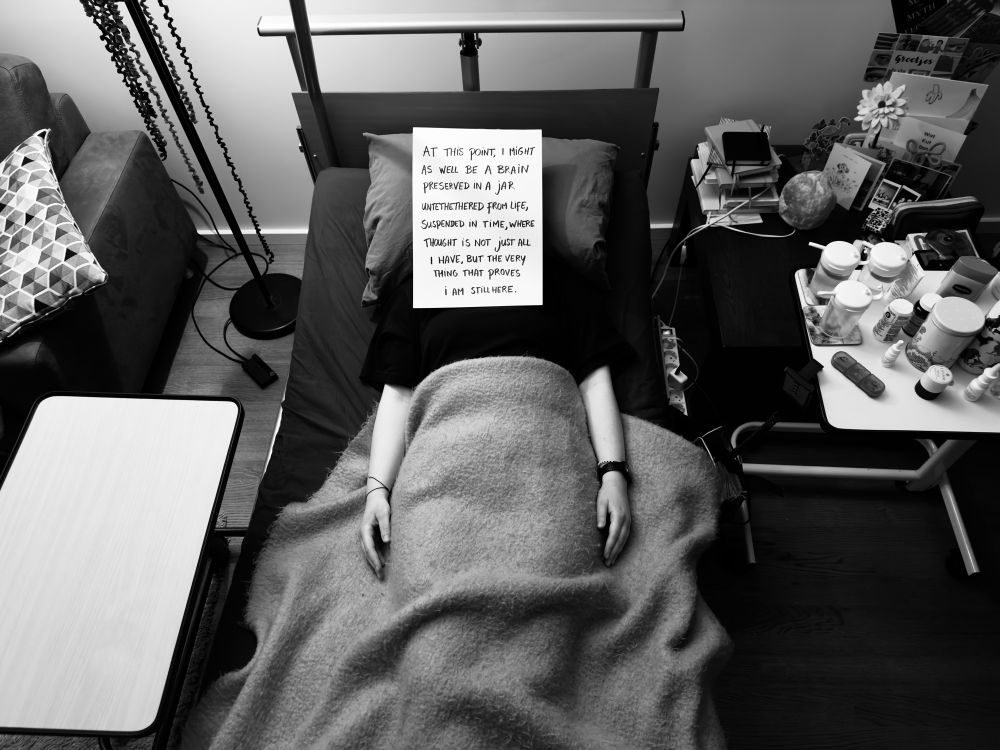 MYTH
Groetjes
AT THIS POINT, I MIGHT
AS WELL BE A BRAIN
PRESERVED IN A JAR.
UNTETHETHERED FROM LIFE,
SUSPENDED IN TIME, WHERE
THOUGHT IS NOT JUST ALL
I HAVE, BUT THE VERY
THING THAT PROVES
I AM STILL HERE.